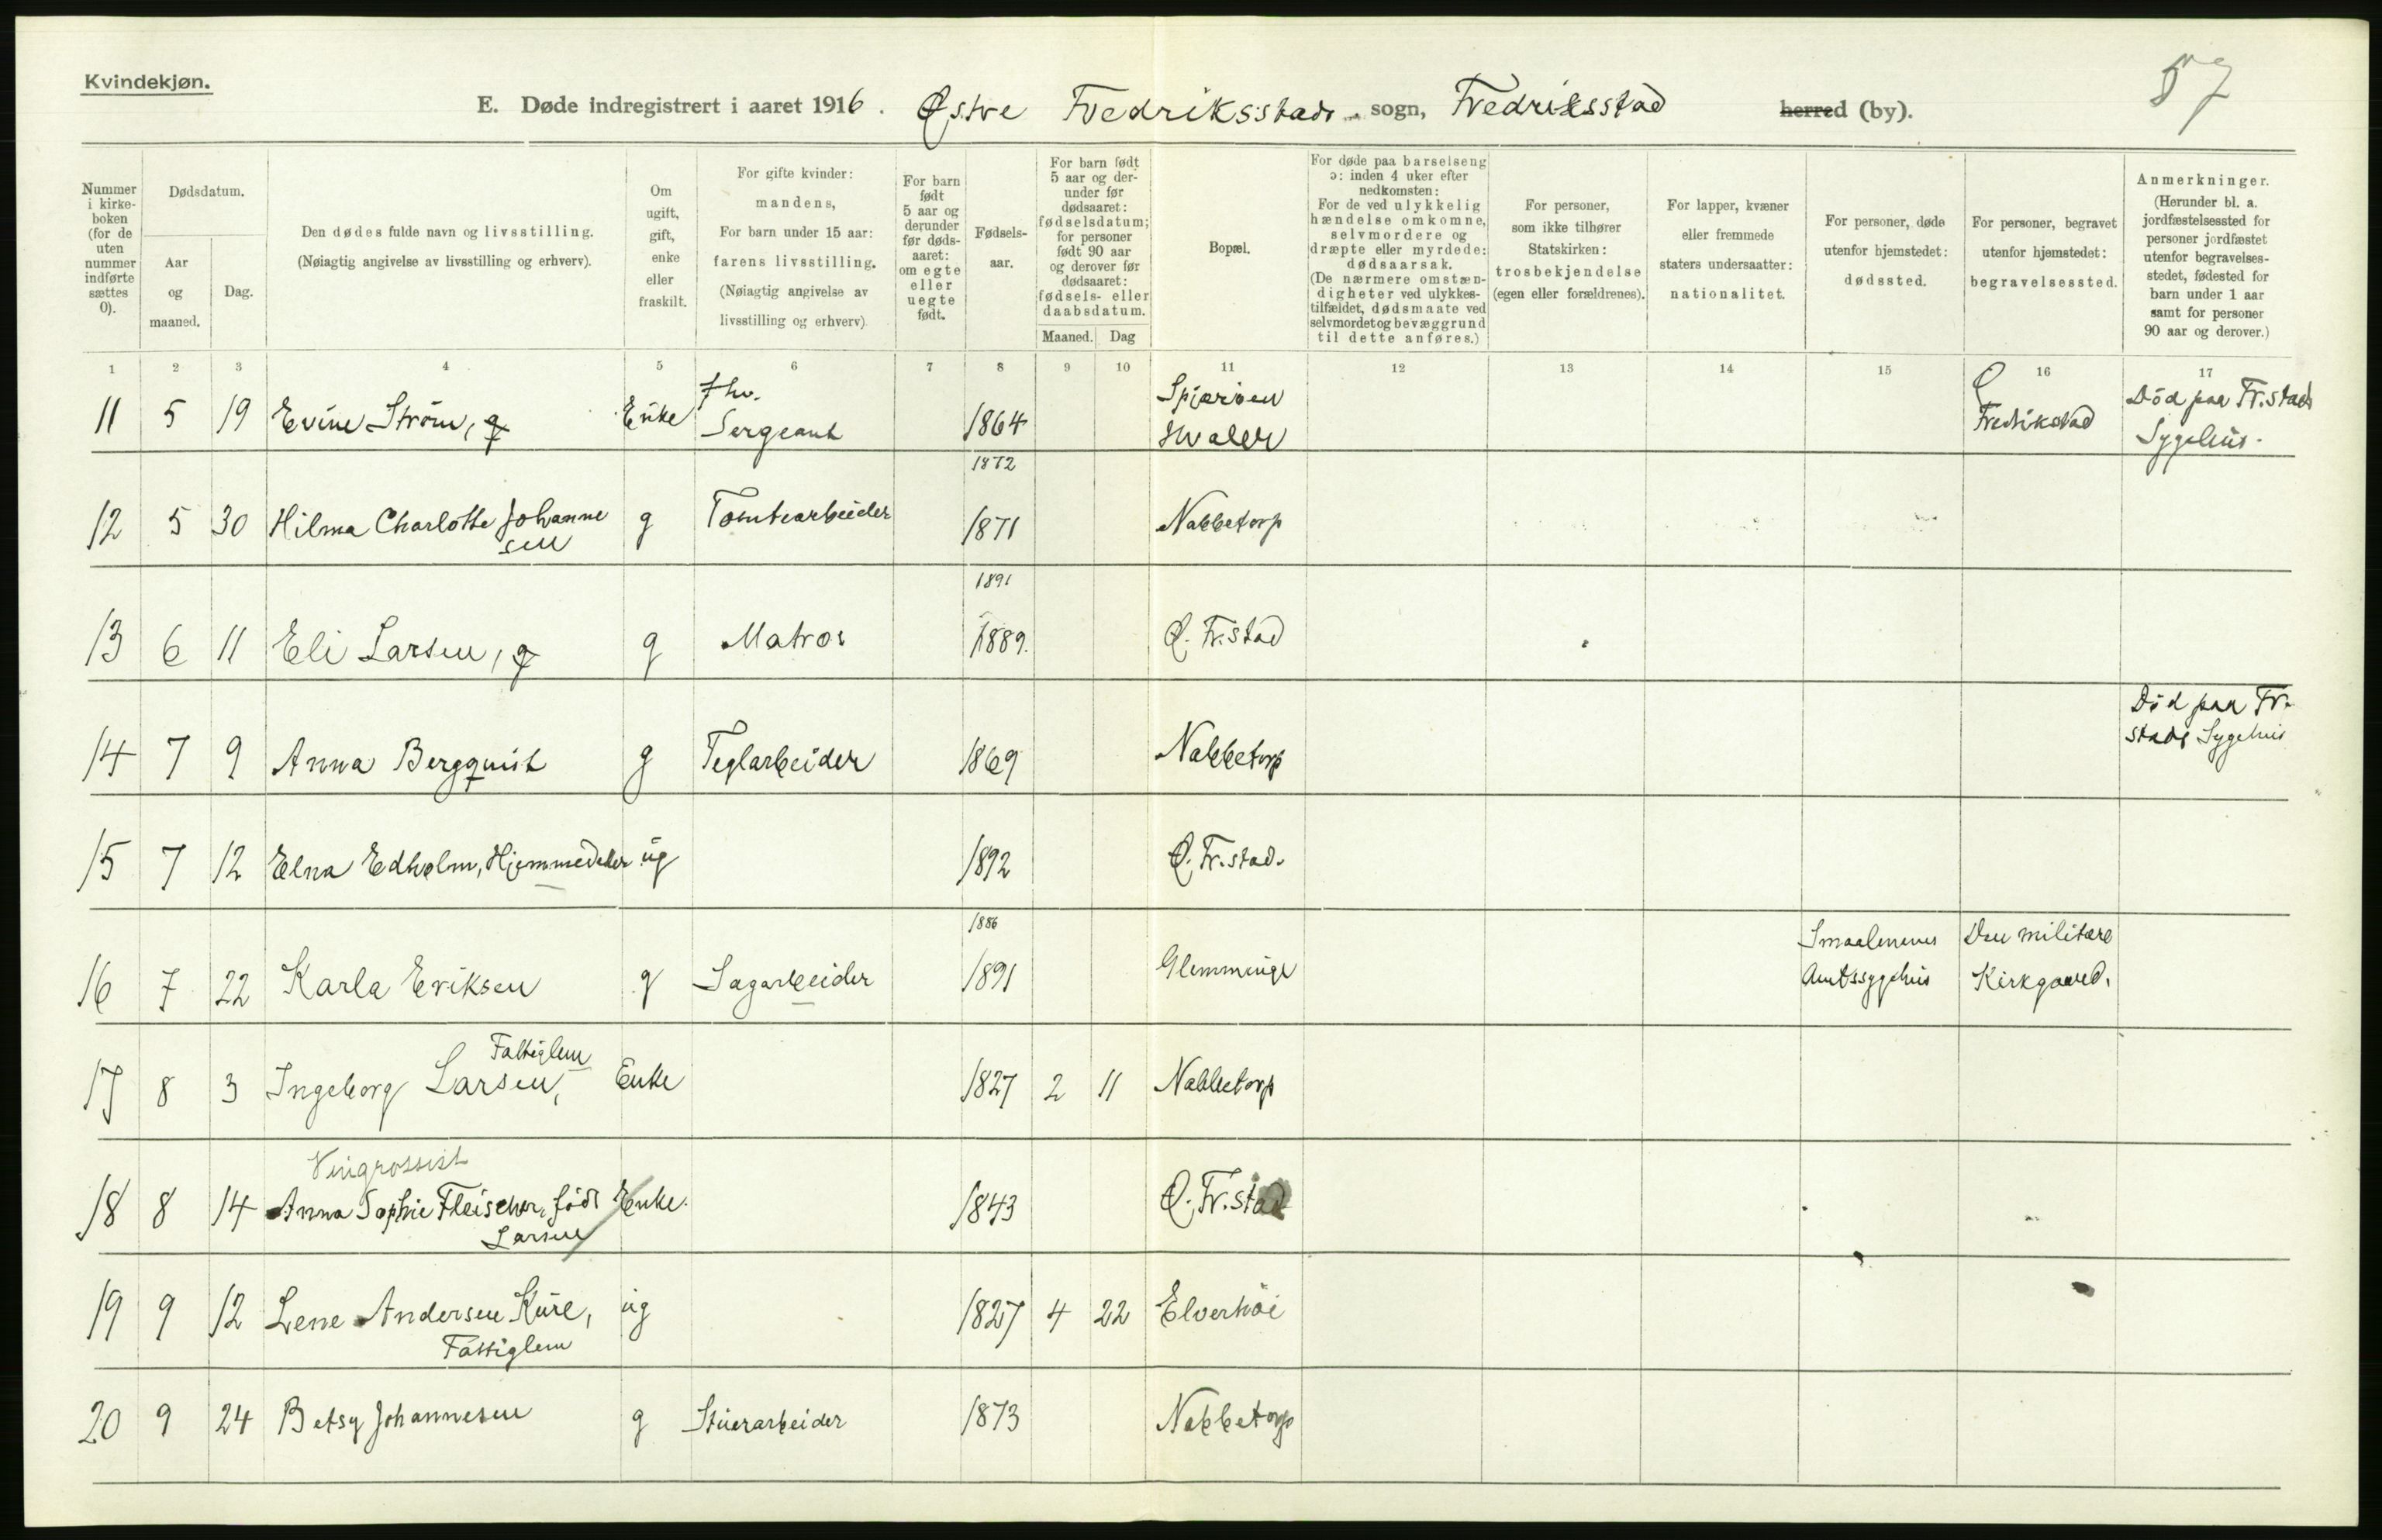 Kvindekjøn.
57
E. Døde indregistrert i aaret 1916. Østre Fredriksstads sogn, Fredriksstad herred (by).
Nummer i kirke-boken (for de uten nummer indførte sættes 0).
Dødsdatum.
Aar og maaned.
Dag.
Den dødes fulde navn og livsstilling.
(Nøiagtig angivelse av livsstilling og erhverv).
Om ugift, gift, enke eller fraskilt.
For gifte kvinder: mandens, For barn under 15 aar: farens livsstilling. (Nøiagtig angivelse av livsstilling og erhverv)
For barn født 5 aar og derunder før døds-aaret: om egte eller uegte født.
Fødsels-aar.
For barn født 5 aar og der-under før dødsaaret: fødselsdatum; for personer født 90 aar og derover før dødsaaret: fødsels- eller daabsdatum.
Maaned. Dag
Bopæl.
For døde paa barselseng ɔ: inden 4 uker efter nedkomsten: For de ved ulykkelig hændelse omkomne, selvmordere og dræpte eller myrdede: dødsaarsak. (De nærmere omstæn-digheter ved ulykkes-tilfældet, dødsmaate ved selvmordet og bevæggrund til dette anføres.)
For personer, som ikke tilhører Statskirken: trosbekjendelse (egen eller forældrenes).
For lapper, kvæner eller fremmede staters undersaatter: nationalitet.
For personer, døde utenfor hjemstedet: dødssted.
For personer, begravet utenfor hjemstedet: begravelsessted.
Anmerkninger. (Herunder bl. a. jordfæstelsessted for personer jordfæstet utenfor begravelses-stedet, fødested for barn under 1 aar samt for personer 90 aar og derover.)
1 2 3 4 5 6 7 8 9 10 11 12 13 14 15 16 17
11 5 19 Evine Strøm, Enke fhv. Sergeant 1864 Spjærøen Hvaler Ø Fredrikstad Død paa Fr.stads Sygehus.
12 5 30 Hilma Charlotte Johannesen g Tomtearbeider 1872 1871 Nabbetorp
13 6 11 Eli Larsen, g Matros 1891 1889. Ø. Fr.stad
14 7 9 Anna Bergquist g Teglarbeider 1869 Nabbetorp Død paa Fr.stads Sygehus
15 7 12 Elna Edholm, Hjemmedatter ug 1892 Ø. Fr.stad.
16 7 22 Karla Eriksen g Sagarbeider 1886 1891 Glemminge Smaalenenes Amtssygehus Den militære Kirkgaard.
17 8 3 Ingeborg Larsen, Fattiglem Enke 1827 2 11 Nabbetorp
Vingrossist
18 8 14 Anna Sophie Fleischer, født Larsen Enke. 1843 Ø. Fr.stad
19 9 12 Lene Andersen Kure, Fattiglem ug 1827 4 22 Elverhøi
20 9 24 Betsy Johannesen g Stuerarbeider 1873 Nabbetorp